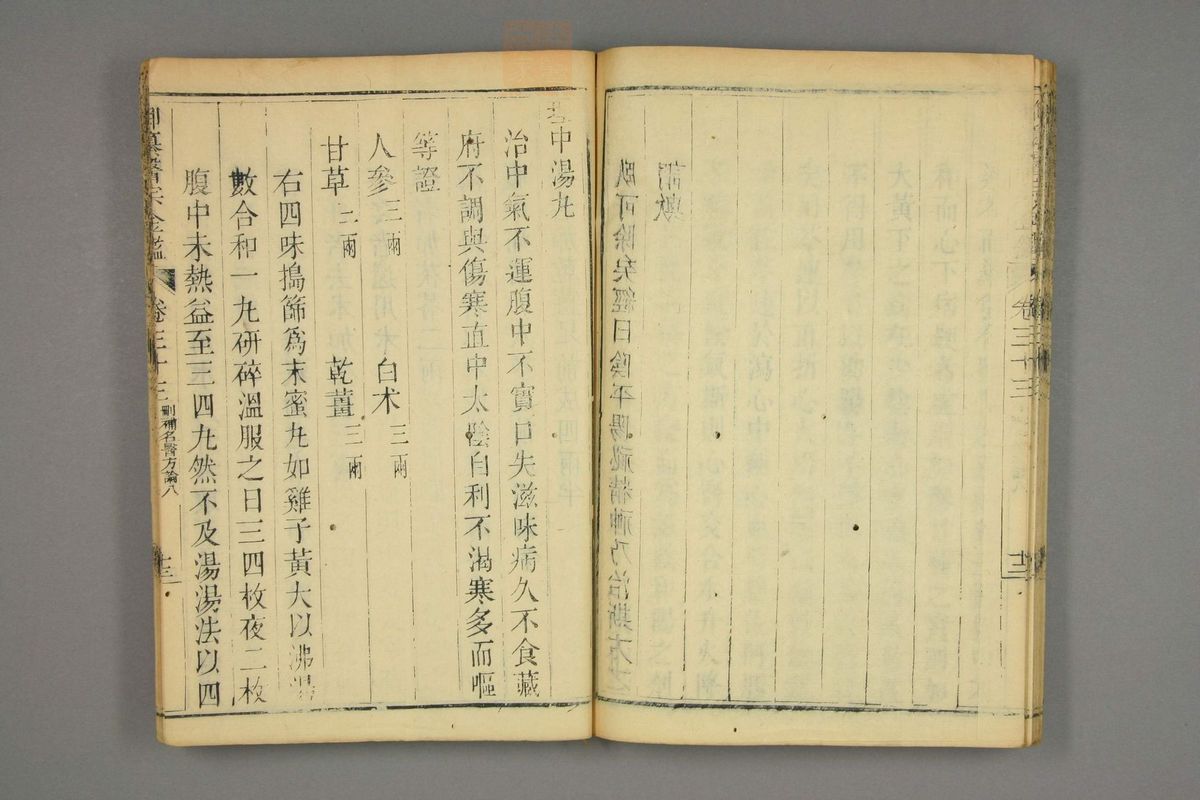 卷三十三
十二
臥可除矣經曰陰平陽祕精神乃治斯之
謂歟
理中湯丸
治中氣不運腹中不實口失滋味病久不食藏
府不調與傷寒直中太陰自利不渴寒多而嘔
等證
人參三兩 白朮三兩
甘草二兩 乾薑三兩
右四味搗篩爲末蜜丸如雞子黃大以沸湯
數合和一丸研碎溫服之日三四枚夜二枚
腹中未熱益至三四丸然不及湯湯法以四
御纂醫宗金鑑 卷三十三 刪補名醫方論八 十三